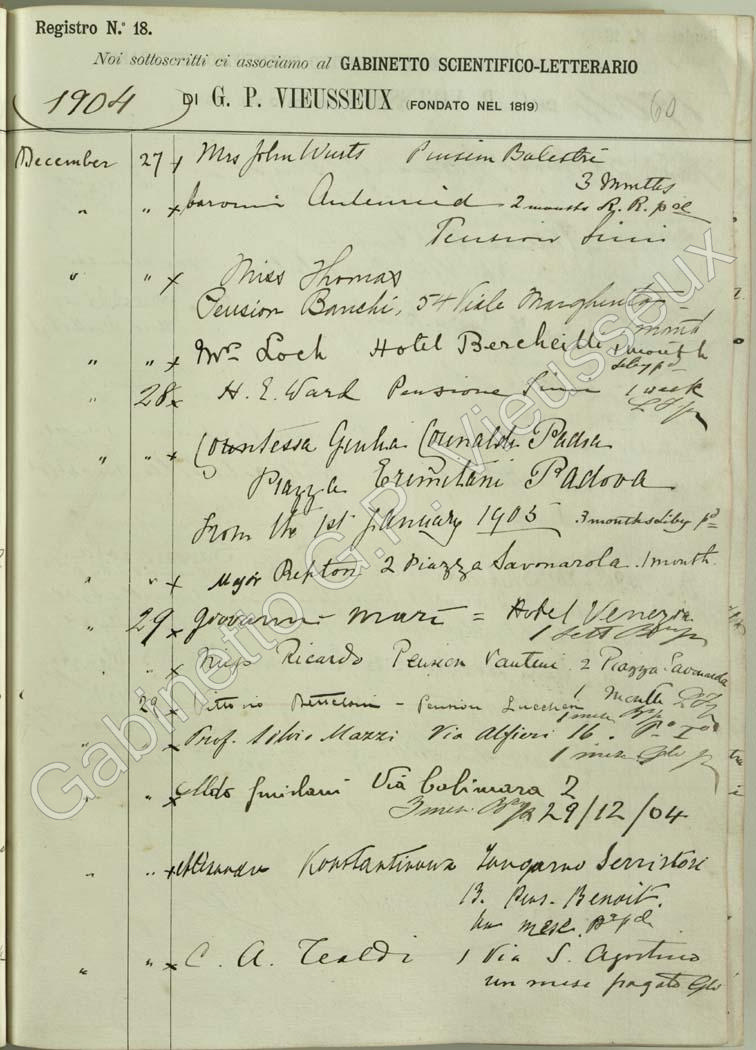 Registro N.º 18.
Noi sottoscritti ci associamo al GABINETTO SCIENTIFICO-LETTERARIO
1904 DI G. P. VIEUSSEUX (FONDATO NEL 1819) 60
December 27 x Mrs John Wurts Pension Balestri
3 Months
" " x 2 months R. R. pd
Pension Simi
" " x Miss Thomas
Pension Banchi, 54 Viale Margherita
" " x Mrs Loch Hotel Berchielli 1 month
" 28 x H. E. Ward Pensione Simi 1 week
" " x Contessa Giulia Padra
Piazza Eremitani Padova
From the 1st January 1905 3 months
" " x Major Repton 2 Piazza Savonarola. 1 month.
" 29 x Giovanni Mari = Hotel Venezia
1 Sett
" x Miss Ricardo Pension Vantini 2 Piazza Savonarola
1 Month
29 x Vittorio Betteloni - Pension Lucchesi
1 mese
" " x Prof. Silvio Mazzi Via Alfieri 16. Po Io
1 mese
" " x Aldo Via Calimara 2
3 mesi 29/12/04
" " x Konstantinowa Lungarno Serristori
13. Pens. Benoit.
un mese. pd
" " x C. A. Tealdi 1 Via S. Agostino
un mese pagato
Gabinetto G.P. Vieusseux